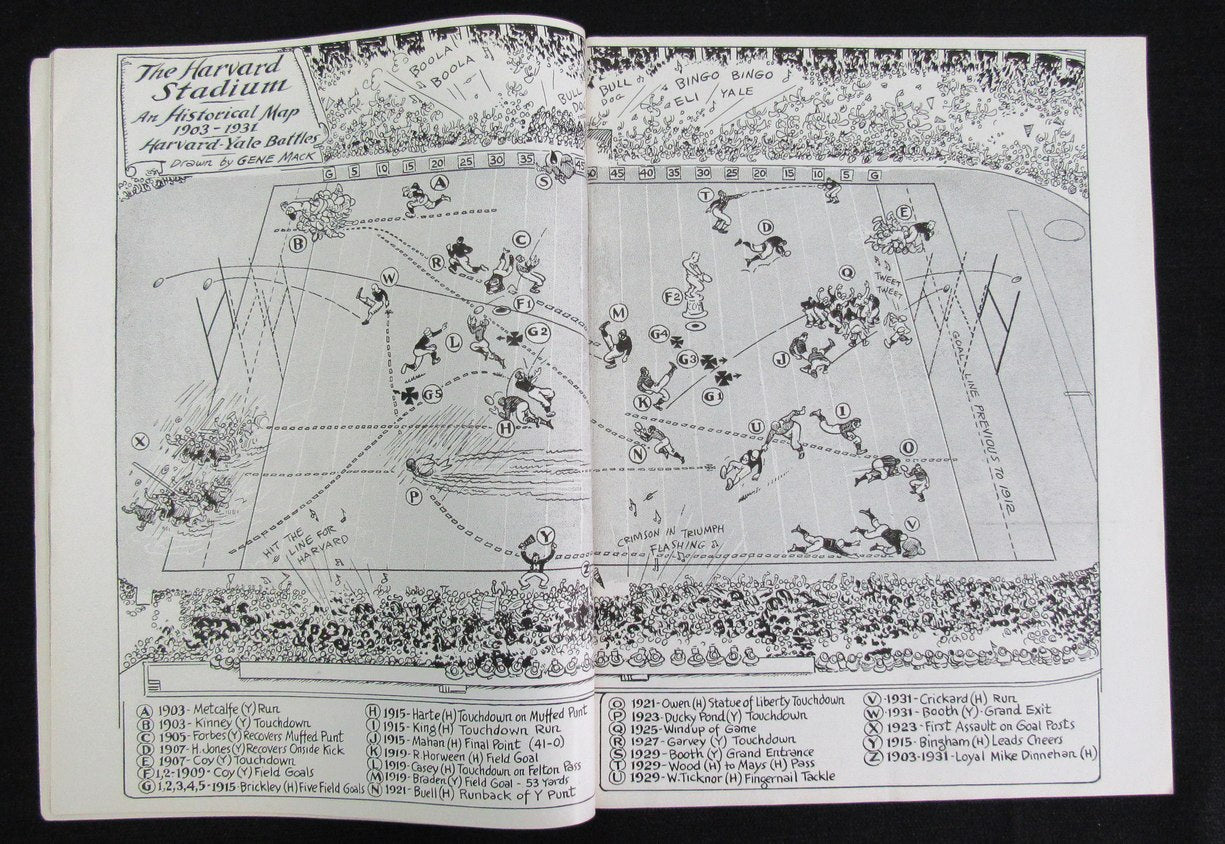 The Harvard
Stadium
An Historical Map
1903-1931
Harvard-Yale Battles
Drawn by GENE MACK
BOOLA
BOOLA
BULL
DOG
BULL
DOG
BINGO BINGO
ELI YALE
G 5 10 15 20 25 30 35 45
50 45 40 35 30 25 20 15 10 5 G
S
A
B
C
R
W
F1
L
G2
G5
H
X
P
Y
Z
T
D
E
F2
Q
TWEET
TWEET
M
G4
G3
G1
J
K
N
U
I
O
V
GOAL LINE PREVIOUS TO 1912
HIT THE
LINE FOR
HARVARD
CRIMSON IN TRIUMPH
FLASHING
H
A 1903-Metcalfe (Y) Run
B 1903-Kinney (Y) Touchdown
C 1905-Forbes (Y) Recovers Muffed Punt
D 1907-H. Jones (Y) Recovers Onside Kick
E 1907-Coy (Y) Touchdown
F 1,2-1909-Coy (Y) Field Goals
G 1,2,3,4,5-1915-Brickley (H) Five Field Goals
H 1915-Harte (H) Touchdown on Muffed Punt
I 1915-King (H) Touchdown Run
J 1915-Mahan (H) Final Point (41-0)
K 1919-R. Horween (H) Field Goal
L 1919-Casey (H) Touchdown on Felton Pass
M 1919-Braden (Y) Field Goal-53 Yards
N 1921-Buell (H) Runback of Y Punt
O 1921-Owen (H) Statue of Liberty Touchdown
P 1923-Ducky Pond (Y) Touchdown
Q 1925-Windup of Game
R 1927-Garvey (Y) Touchdown
S 1929-Booth (Y) Grand Entrance
T 1929-Wood (H) to Mays (H) Pass
U 1929-W. Ticknor (H) Fingernail Tackle
V 1931-Crickard (H) Run
W 1931-Booth (Y)-Grand Exit
X 1923-First Assault on Goal Posts
Y 1915-Bingham (H) Leads Cheers
Z 1903-1931-Loyal Mike Dinnehan (H)